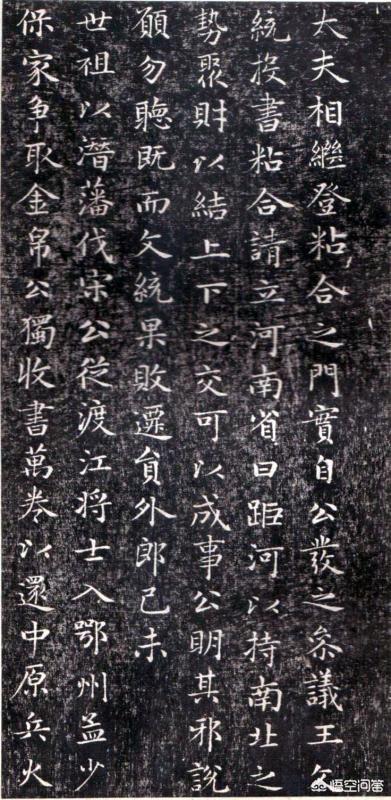 大夫相繼登粘合之門實自公發之叅議王文
統投書粘合請立河南省曰距河以持南北之
勢聚財以結上下之交可以成事公明其邪說
願勿聽既而文統果敗遷貟外郎己未
世祖以潛藩伐宋公從渡江將士入鄂州孟少
保家爭取金帛公獨收書萬卷以還中原兵火
悟空问答